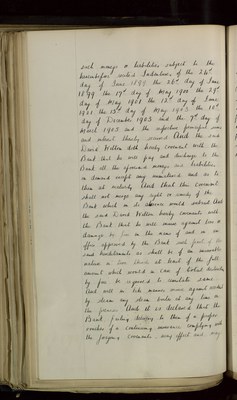 such moneys & liabilities subject to the
hereinbefore recited Indentures of the 26th
day of June 1899 the 26th day of June
1899 the 17th day of May 1900 the 29th
day of May 1901 the 12th day of June
1901 the 13th day of May 1903 the 10th
day of December 1903 and the 9th day of
March 1905 and the respective principal sums
and interest thereby secured And the said
David Millen doth hereby covenant with the
Bank that he will pay and discharge to the
Bank all the aforesaid moneys and liabilities
on demand except any
then at maturity And that this covenant
shall not merge any right or remedy of the
Bank which it otherwise would have And
the said David Millen hereby covenants with
the Bank that he will insure against loss or
damage by fire in the name of and in an
office approved by the Bank such parts of the
said hereditaments as shall be of an insurable
nature a at least of the full
amount which would in case of total destruction
by fire be required to reinstate same
And will in like manner insure against accident
by steam any steam boiler at any time on
the premises And it is declared that the
Bank failing delivery to them of a proper
voucher of a continuing insurance complying with
the foregoing covenants may effect such